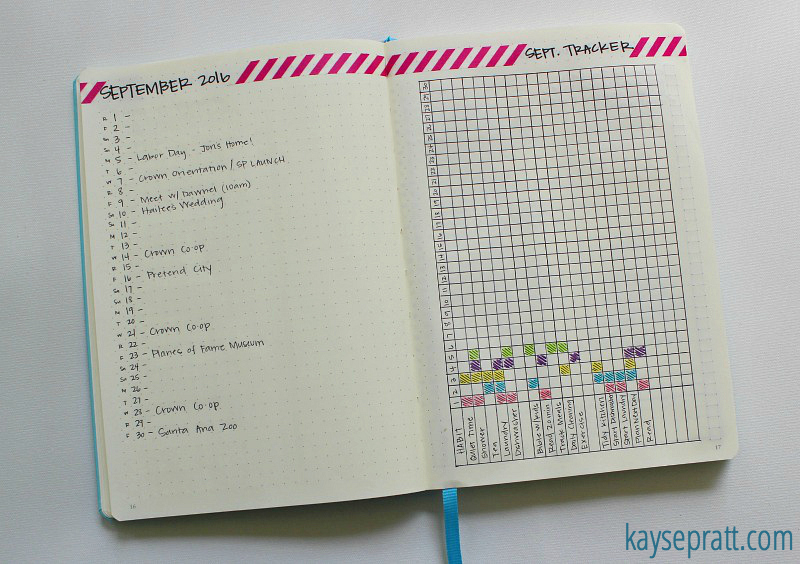 SEPTEMBER 2016
R 1 -
F 2 -
Sa 3 -
Su 4 -
M 5 - Labor Day - Jon's Home!
T 6 -
W 7 - Crown Orientation / SP LAUNCH
R 8 -
F 9 - Meet w/ Dawnel (10am)
Sa 10 - Hailee's Wedding
Su 11 -
M 12 -
T 13 -
W 14 - Crown Co-op
R 15 -
F 16 - Pretend City
Sa 17 -
Su 18 -
M 19 -
T 20 -
W 21 - Crown Co-op
R 22 -
F 23 - Planes of Fame Museum
Sa 24 -
Su 25 -
M 26 -
T 27 -
W 28 - Crown Co-op
R 29 -
F 30 - Santa Ana Zoo
16
SEPT. TRACKER
30
29
28
27
26
25
24
23
22
21
20
19
18
17
16
15
14
13
12
11
10
9
8
7
6
5
4
3
2
1
HABIT
Quiet Time
Shower
Ten
Laundry
Dishwasher
Bible w/ Kids
Read 20 min
Track Meals
Daily Cleaning
Exercise
Tidy Kitchen
Start Dishwasher
Start Laundry
Plan Next Day
Read
17
kaysepratt.com